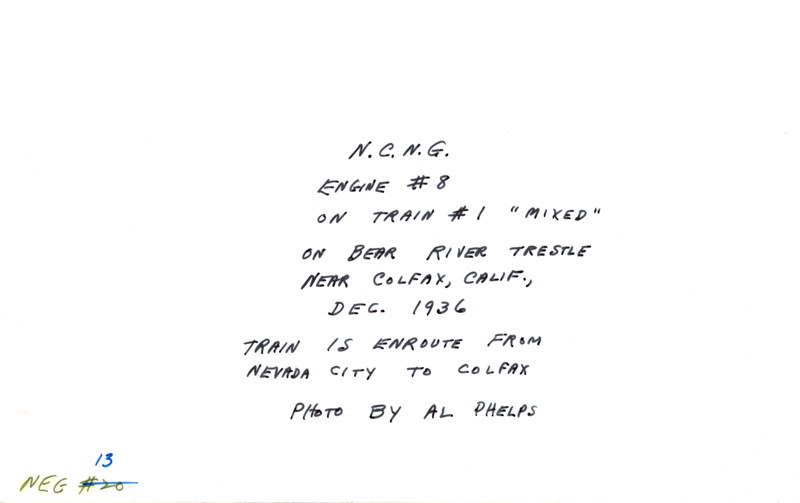 N.C.N.G.
ENGINE #8
ON TRAIN #1 "MIXED"
ON BEAR RIVER TRESTLE
NEAR COLFAX, CALIF.,
DEC. 1936
TRAIN IS ENROUTE FROM
NEVADA CITY TO COLFAX
PHOTO BY AL PHELPS
13
NEG #20